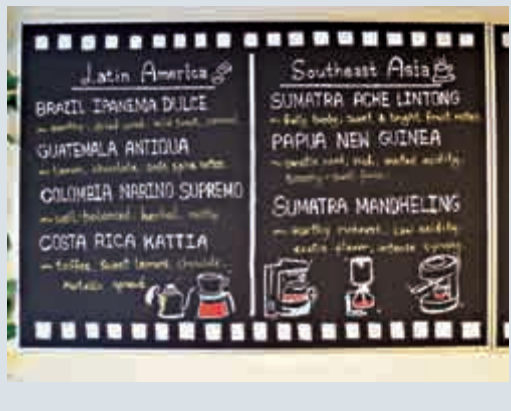 Latin America
BRAZIL IPANEMA DULCE
GUATEMALA ANTIGUA
lemon, chocolate, spice notes
COLOMBIA NARINO SUPREMO
well-balanced, herbal, nutty
COSTA RICA KATTIA
toffee, sweet lemon, chocolate,
Southeast Asia
SUMATRA ACHE LINTONG
fully body, sweet & bright fruit notes
PAPUA NEW GUINEA
acidity,
SUMATRA MANDHELING
earthy richness, low acidity,
exotic flavor, intense syrupy